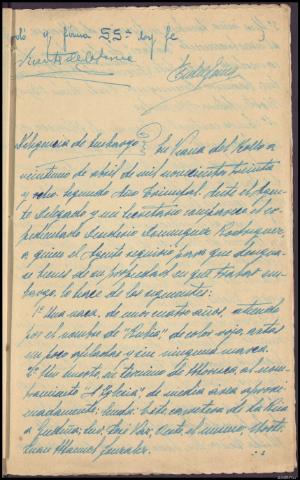 y firma SSª doy fe
Diligencia de Embargo En Viana del Bollo a
veintiuno de abril de mil novecientos treinta
y ocho. Segundo Año Triunfal. Ante el Agen-
te Delegado y mi Secretario comparece el ex-
pedientado Dominguez Rodriguez
a quien el Agente requirió para que designa-
se bienes de su propiedad en que trabar em-
bargo, lo hace de los siguientes:
1º Una vaca, de unos cuatro años, atiende
por el nombre de "Rubia", de color roja, astas
un poco y sin ninguna marca.
2º Un huerto en termino de al nom-
bramiento "A Iglesia", de media área aproxi-
madamente; linda: Este, carretera de la Rúa
a Gudiña; Sur, José Oeste, el mismo; Norte
Juan Manuel Gonzalez.